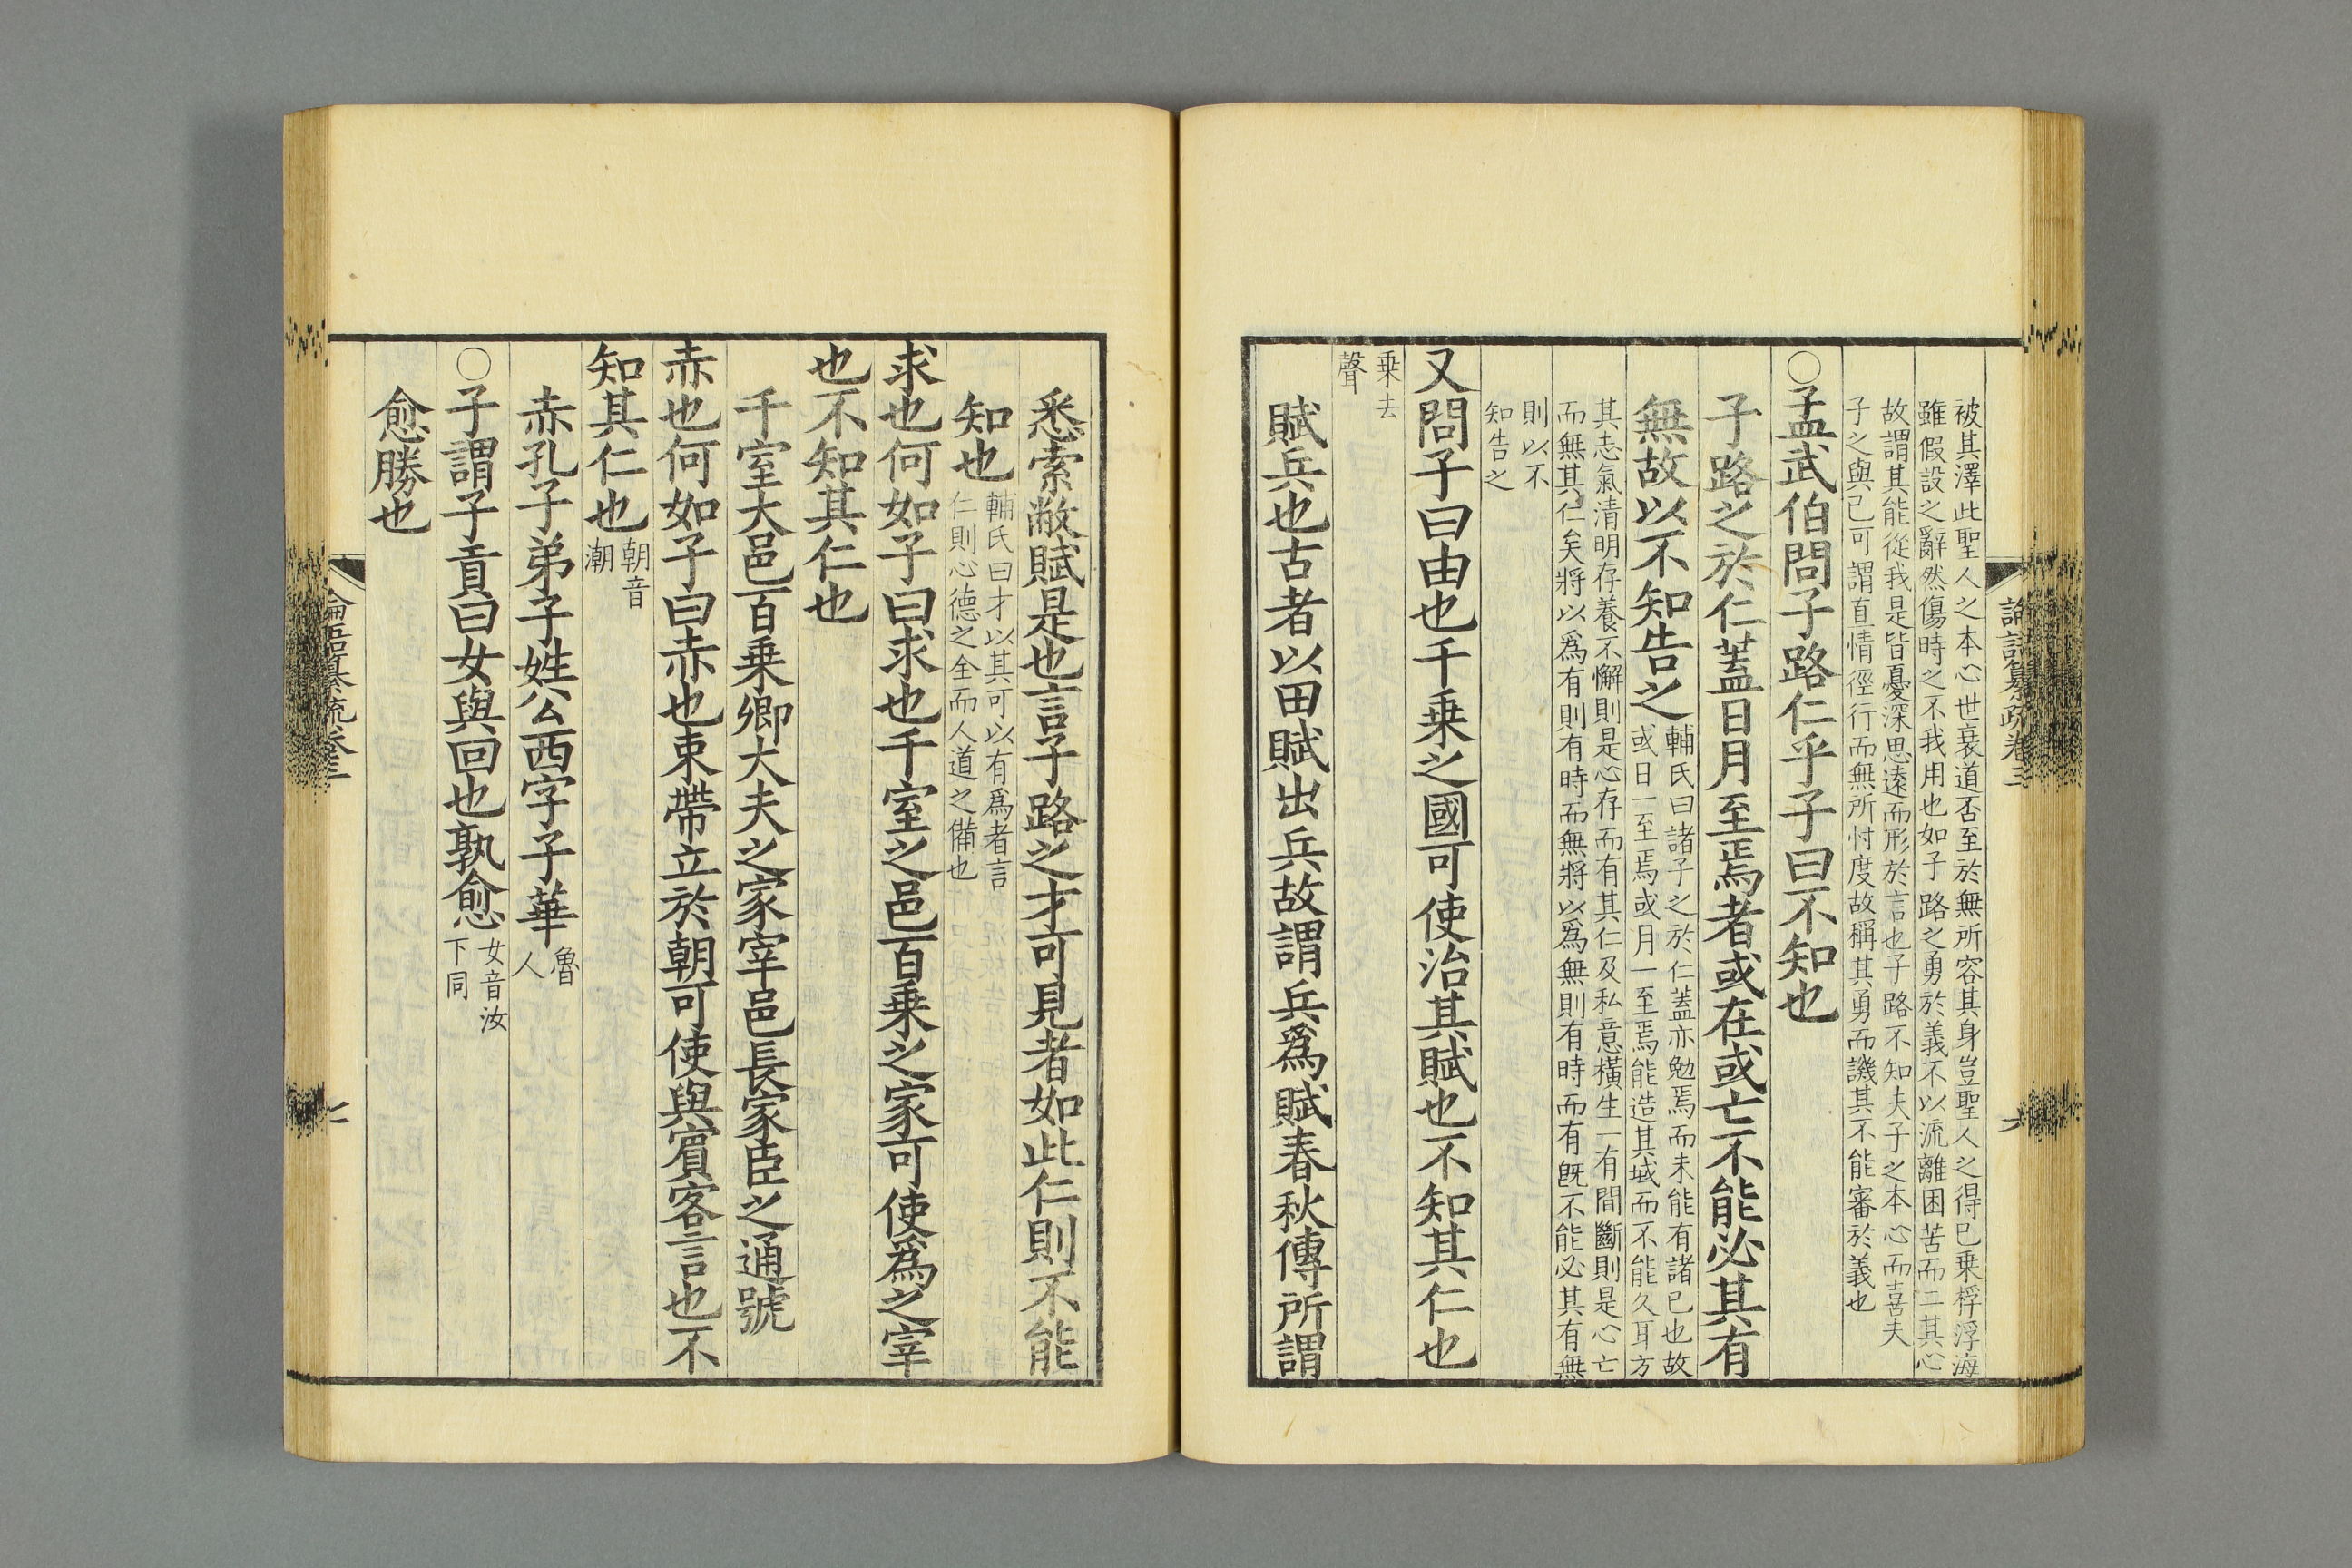 論語纂疏卷三
六
被其澤此聖人之本心世衰道否至於無所容其身豈聖人之得已乗桴浮海
雖假設之辭然傷時之不我用也如子路之勇於義不以流離困苦而二其心
故謂其能從我是皆憂深思遠而形於言也子路不知夫子之本心而喜夫
子之與己可謂直情徑行而無所忖度故稱其勇而譏其不能審於義也
○孟武伯問子路仁乎子曰不知也
子路之於仁蓋日月至焉者或在或亡不能必其有
無故以不知告之
輔氏曰諸子之於仁蓋亦勉焉而未能有諸已也故
或日一至焉或月一至焉能造其域而不能久耳方
其志氣清明存養不懈則是心存而有其仁及私意橫生一有間斷則是心亡
而無其仁矣將以爲有則有時而無將以爲無則有時而有旣不能必其有無
則以不
知告之
又問子曰由也千乗之國可使治其賦也不知其仁也
乗去
聲
賦兵也古者以田賦出兵故謂兵爲賦春秋傳所謂
悉索敝賦是也言子路之才可見者如此仁則不能
知也
輔氏曰才以其可以有爲者言
仁則心德之全而人道之備也
求也何如子曰求也千室之邑百乗之家可使爲之宰
也不知其仁也
千室大邑百乗卿大夫之家宰邑長家臣之通號
赤也何如子曰赤也束帶立於朝可使與賓客言也不
知其仁也
朝音
潮
赤孔子弟子姓公西字子華
魯
人
○子謂子貢曰女與回也孰愈
女音汝
下同
愈勝也
論語纂疏卷三
七